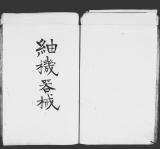 紬機器械